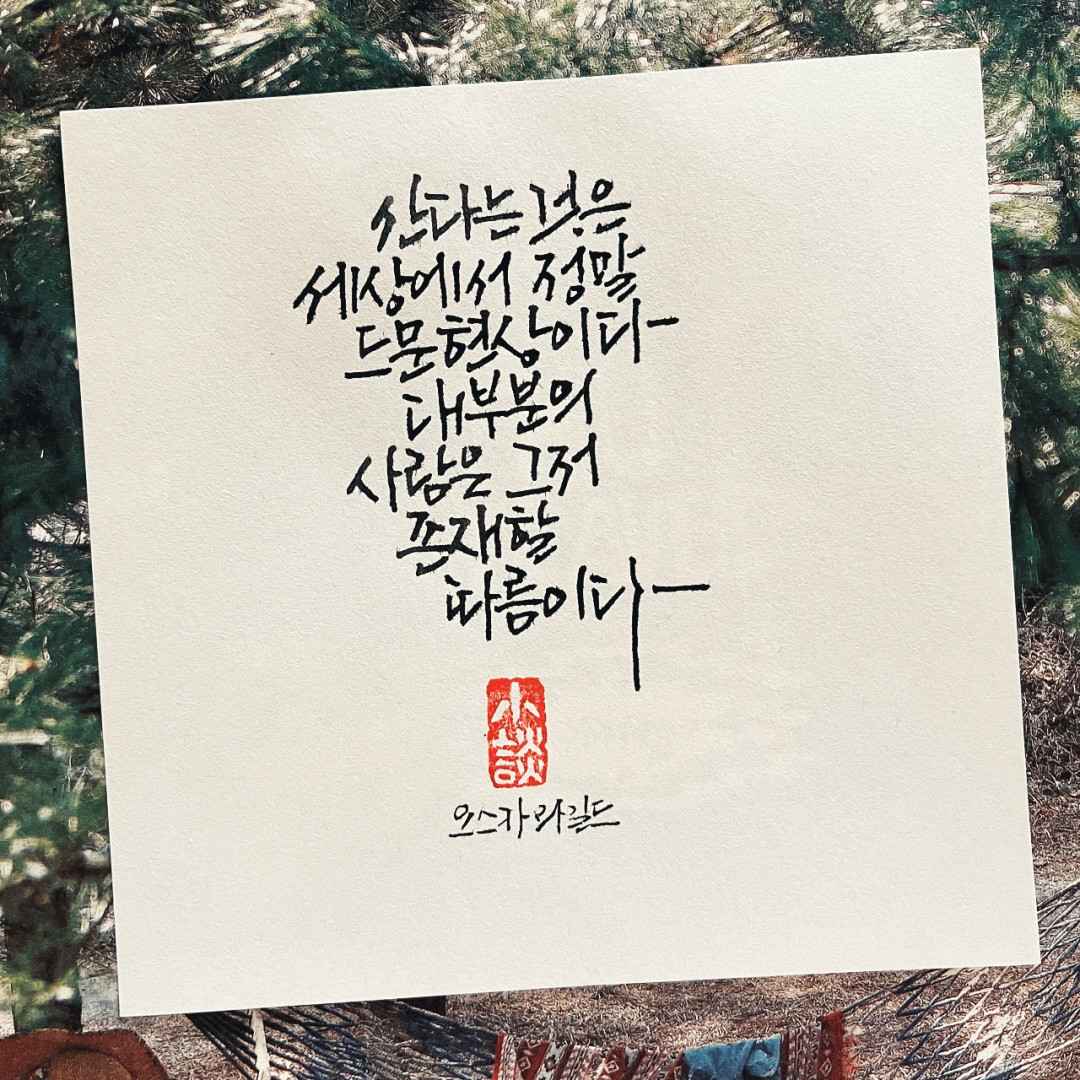 산다는 것은
세상에서 정말
드문 현상이다
대부분의
사람은 그저
존재할
따름이다
小談
오스카 와길드